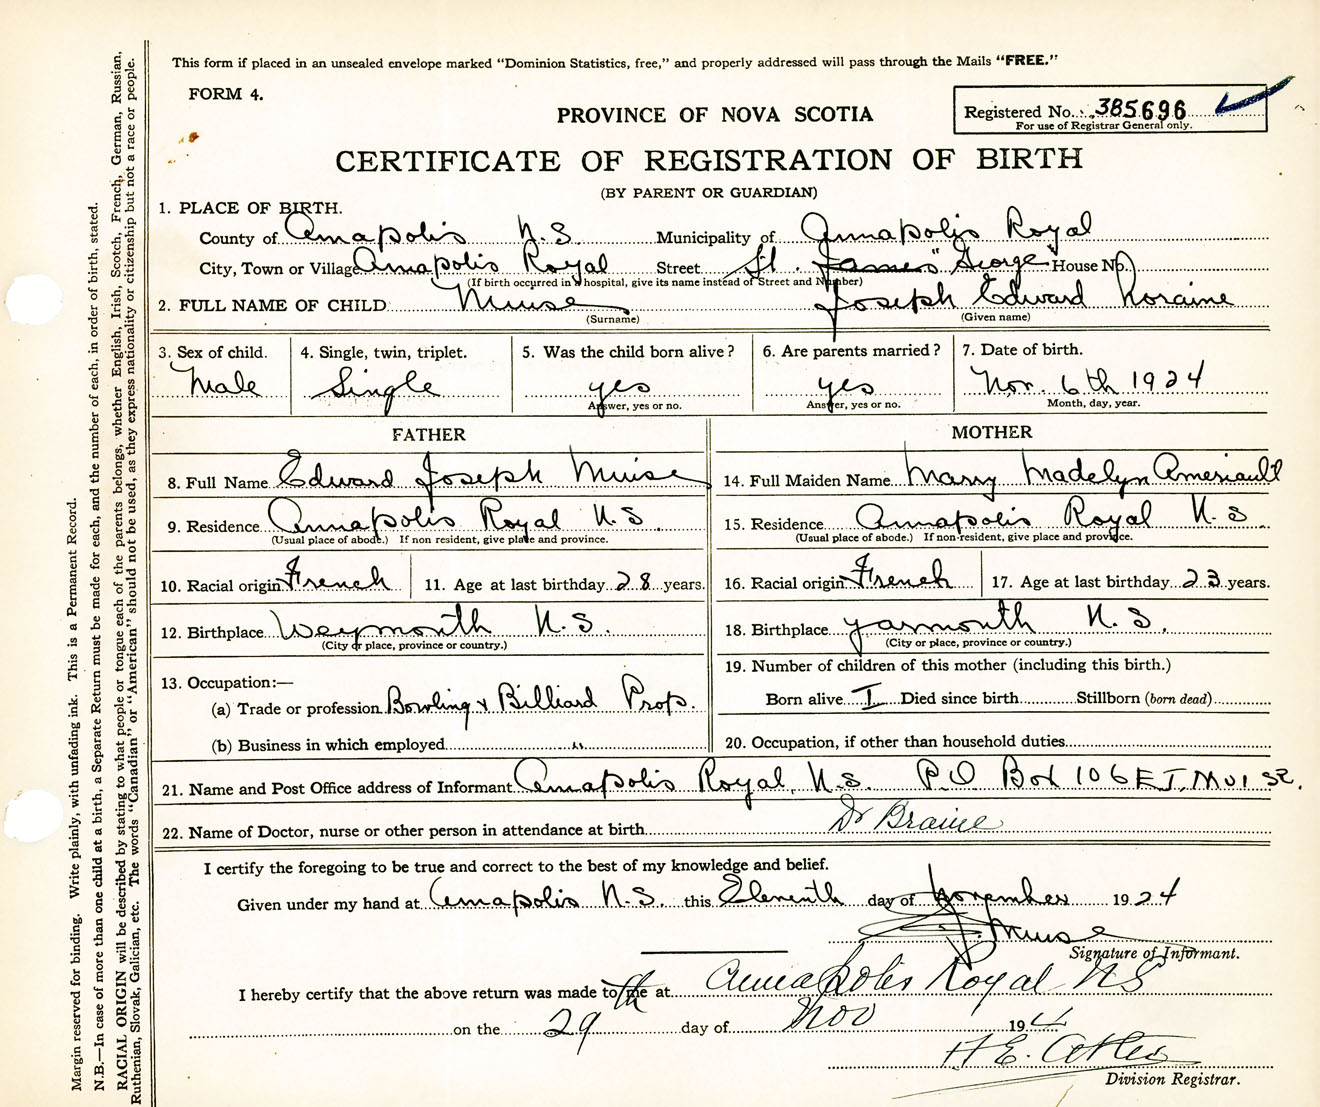 This form if placed in an unsealed envelope marked "Dominion Statistics, free," and properly addressed will pass through the Mails "FREE."
FORM 4.
PROVINCE OF NOVA SCOTIA
Registered No. 385696
For use of Registrar General only.
CERTIFICATE OF REGISTRATION OF BIRTH
(BY PARENT OR GUARDIAN)
1. PLACE OF BIRTH.
County of Annapolis N.S. Municipality of Annapolis Royal
City, Town or Village Annapolis Royal Street St. James" George House No.
(If birth occurred in hospital, give its name instead of Street and Number)
2. FULL NAME OF CHILD Muise Joseph Edward Loraine
(Surname) (Given name)
3. Sex of child. 4. Single, twin, triplet. 5. Was the child born alive? 6. Are parents married? 7. Date of birth.
Male Single yes yes Nov. 6th 1924
Answer, yes or no. Answer, yes or no. Month, day, year.
FATHER MOTHER
8. Full Name Edward Joseph Muise 14. Full Maiden Name Mary Madelyn Ameriault
9. Residence Annapolis Royal N.S. 15. Residence Annapolis Royal N.S
(Usual place of abode.) If non resident, give place and province. (Usual place of abode.) If non-resident, give place and province.
10. Racial origin French 11. Age at last birthday 28 years. 16. Racial origin French 17. Age at last birthday 23 years.
12. Birthplace Weymouth N.S. 18. Birthplace Yarmouth N.S.
(City or place, province or country.) (City or place, province or country.)
13. Occupation:— 19. Number of children of this mother (including this birth.)
(a) Trade or profession Bowling & Billiard Prop. Born alive I Died since birth Stillborn (born dead)
(b) Business in which employed " 20. Occupation, if other than household duties
21. Name and Post Office address of Informant Annapolis Royal, N.S. P.O Box 106 E J. Muise.
22. Name of Doctor, nurse or other person in attendance at birth Dr Braine
I certify the foregoing to be true and correct to the best of my knowledge and belief.
Given under my hand at Annapolis N.S. this Eleventh day of November 1924
Muise
Signature of Informant.
I hereby certify that the above return was made to me at Annapolis Royal NS
on the 29th day of Nov 194
H E.
Division Registrar.
Margin reserved for binding. Write plainly, with unfading ink. This is a Permanent Record.
N.B.—In case of more than one child at a birth, a Separate Return must be made for each, and the number of each, in order of birth, stated.
RACIAL ORIGIN will be described by stating to what people or tongue each of the parents belongs, whether English, Irish, Scotch, French, German, Russian,
Ruthenian, Slovak, Galician, etc. The words "Canadian" or "American" should not be used, as they express nationality or citizenship but not a race or people.